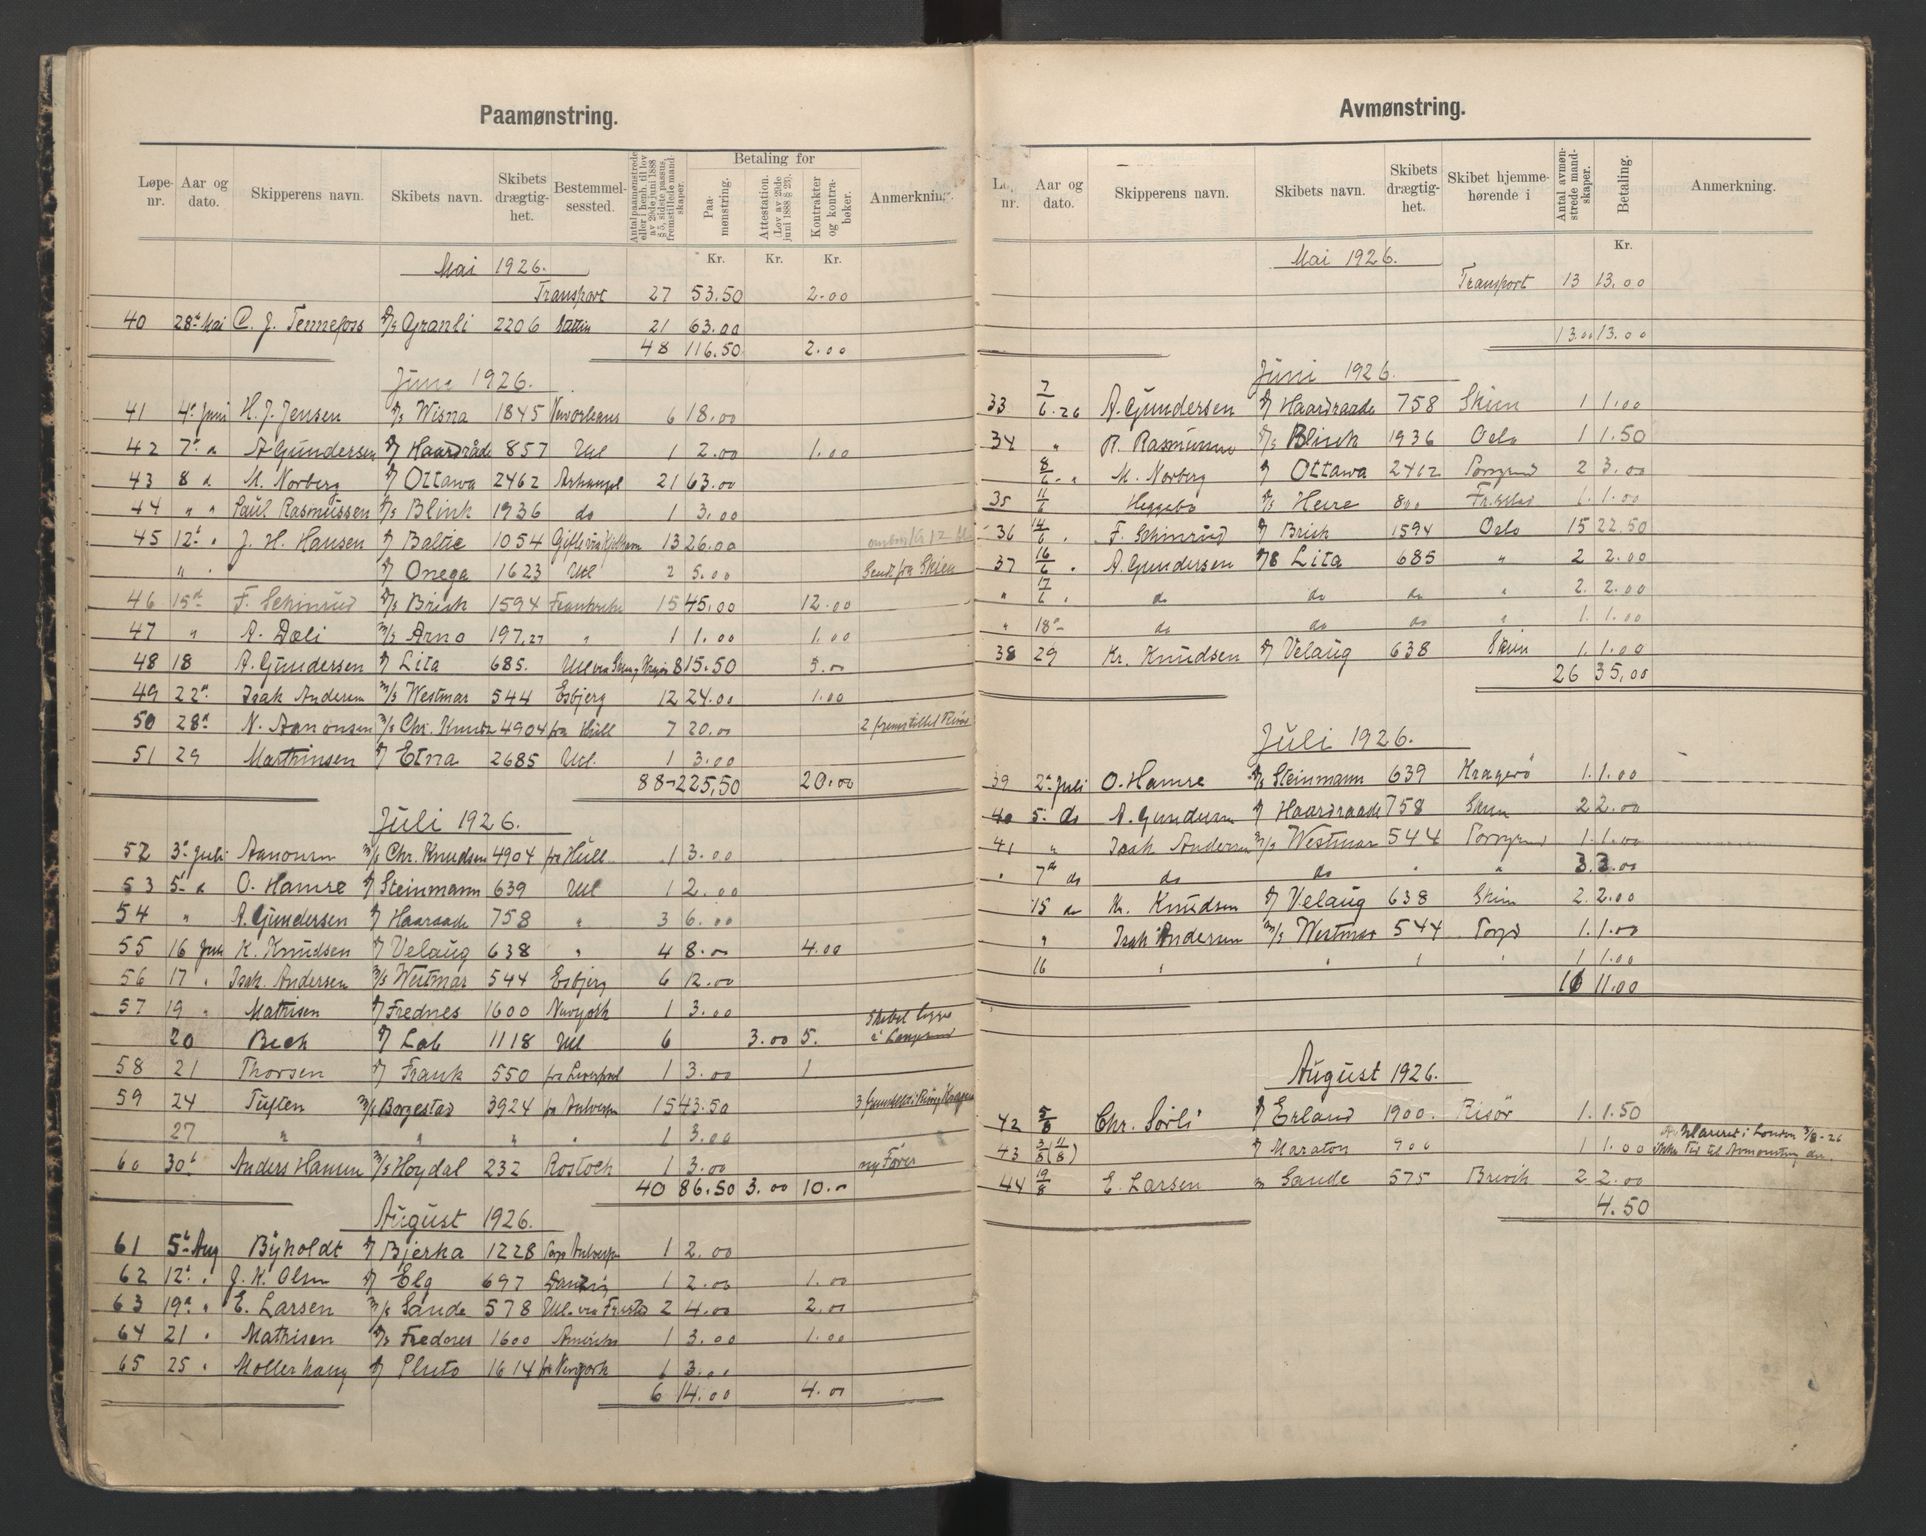 Paamønstring.
Løpe-nr. Aar og dato. Skipperens navn. Skibets navn. Skibets drægtig-het. Bestemmel-sessted. Antal paamønstrede eller i henh. til lov av 29de juni 1888 § 5, sidste passus, fremstillede mand-skaper. Betaling for Paa-mønstring. Attestation. (Lov av 29de juni 1888 § 23). Kontrakter og kontra-bøker. Anmerkning.
Kr. Kr. Kr.
Mai 1926.
Transport 27 53.50 2.00
40 28de Mai C. J. Tennefoss D/S Granli 2206 Stettin 21 63.00
48 116.50 2.00
Juni 1926.
41 4de Juni H. J. Jensen D/S Wisna 1845 Neworleans 6 18.00
42 7de " A Gundersen D/ Haardråde 857 Utl 1 2.00 1.00
43 8 " M. Norberg D/ Ottawa 2462 Arkangel 21 63.00
44 " " Paul Rasmussen D/S Blink 1936 do 1 3.00
45 12te " J. H. Hansen D/ Baltic 1054 Gefle via 13 26.00
" " D/ Onega 1623 Utl 2 5.00 Sendt fra Skien
46 15de F. Schinrud D/S Brisk 1594 Frankrike 15 45.00 12.00
47 " A. Dæli M/S Arno 197,27 " 1 1.00 1.00
48 18 A. Gundersen D/ Lita 685. Utl via 8 15.50 5.00
49 22de Isak Andersen M/S Westmar 544 Esbjerg 12 24.00 1.00
50 28de N. Aanonsen M/S Chr. Knuds 4904 fra Hull 7 20.00 2 fremstillet
51 29 Mathinsen D/ Etna 2685 Utl. 1 3.00
88 225,50 20.00
Juli 1926.
52 3de Juli Aanonsen M/S Chr. Knudsen 4904 fra Hull 1 3.00
53 5te " O. Hamre D/ Steinmann 639 Utl 1 2.00
54 " A. Gundersen D/ Haaraade 758 " 3 6.00
55 16 Juli K. Knudsen D/ Velaug 638 " 4 8.00 4.00
56 17 " Isak Andersen M/S Westmar 544 Esbjerg 6 12.00
57 19 " Mathisen D/ Frednes 1600 Newyork 1 3.00
20 Beck D/ Lab 1118 Utl 6 3.00 5. Skibet ligger i Langesund
58 21 Thorsen D/ Frank 550 fra Liverpool 1 3.00 1
59 24 Tuften M/S Borgestad 3924 fra Antverpen 15 43.50
27 " " " " 1 3.00
60 30te Anders Hansen M/S Høydal 232 Rostock 1 3.00 ny Fører
40 86.50 3.00 10.00
August 1926.
61 5te Aug Byholdt D/ Bjerka 1228 Antverpen 1 2.00
62 12te " J. K. Olsen D/ Elg 697 Danzig 1 2.00 1.00
63 19de " E. Larsen M/S Sande 578 Utl. via 2 4.00 2.00
64 21 " Mathisen D/S Frednes 1600 Amerika 1 3.00 1.00
65 25 " Møllerhaug D/ Pluto 1614 fra Newyork 1 3.00
6 14.00 4.00
Avmønstring.
nr. Aar og dato. Skipperens navn. Skibets navn. Skibets drægtig-het. Skibet hjemme-hørende i Antal avmøn-strede mand-skaper. Betaling. Anmerkning.
Kr.
Mai 1926.
Transport 13 13.00
13.00 13.00
Juni 1926.
33 7/6.26 A. Gundersen D/ Haardraade 758 Skien 1 1.00
34 " R. Rasmussen D/S Blink 1936 Oslo 1 1.50
8/6 " M. Norberg D/ Ottawa 2462 Porsgrund 2 3.00
35 11/6 Heggebø D/S Heire 800 Fr.stad 1. 1.00
36 14/6 " F. Schinrud D/ Brisk 1594 Oslo 15 22.50
37 16/6 " A. Gundersen D/S Lita 685 " 2 2.00
" 17/6 " do do do " 2. 2.00
" 18de do do do " 1. 1.00
38 29 Kr. Knudsen D/ Velaug 638 Skien 1. 1.00
26 35,00
Juli 1926.
39 2de Juli O. Hamre D/S Steinmann 639 Kragerø 1. 1.00
40 5te do A. Gundersen D/ Haardraade 758 Skien 2 2.00
41 " Isak Andersen M/S Westmar 544 Porsgrund 1. 1.00
" 7de do do do " " 3. 3.00
15 do Kr. Knudsen D/ Velaug 638 Skien 2. 2.00
" Isak Andersen M/S Westmar 544 Porsgr 1. 1.00
16 " " " " 1 1.00
11.00
August 1926.
42 5/8 Chr. Sørli D/ Erland 1900. Risør 1. 1.50
43 3/8 (11/8) D/ Maraton 900 1 1.00 Klareret i London 3/8-26 ikke Tid til Avmønstring der.
44 19/8 E. Larsen M Sande 575 Brevik 2 2.00
4.50